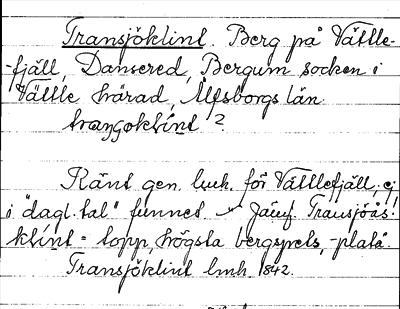 Transjöklint. Berg på Vättle-
-fjäll, Dansered, Bergum socken i
Vättle härad, Älfsborgs län.
traŋʃoklint ?
Känt gen. lmh. för Vättlefjäll, ej
i "dagl. tal" funnet. Jämf. Transjöås!
klint = topp, högsta bergspets, -platå.
Transjöklint lmh. 1842.